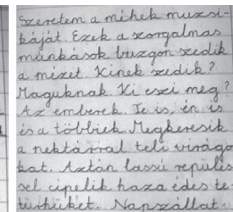 Szeretem a méhek muzsi-
káját. Ezek a szorgalmas
munkások buzgón szedik
a mézet. Kinek szedik?
Maguknak. Ki eszi meg?
Az emberek. Te is, én is
és a többiek. Megkeresik
a nektárral teli virágo
kat. Aztán lassú repülés
sel cipelik haza édes te
rhüket. Napszállat